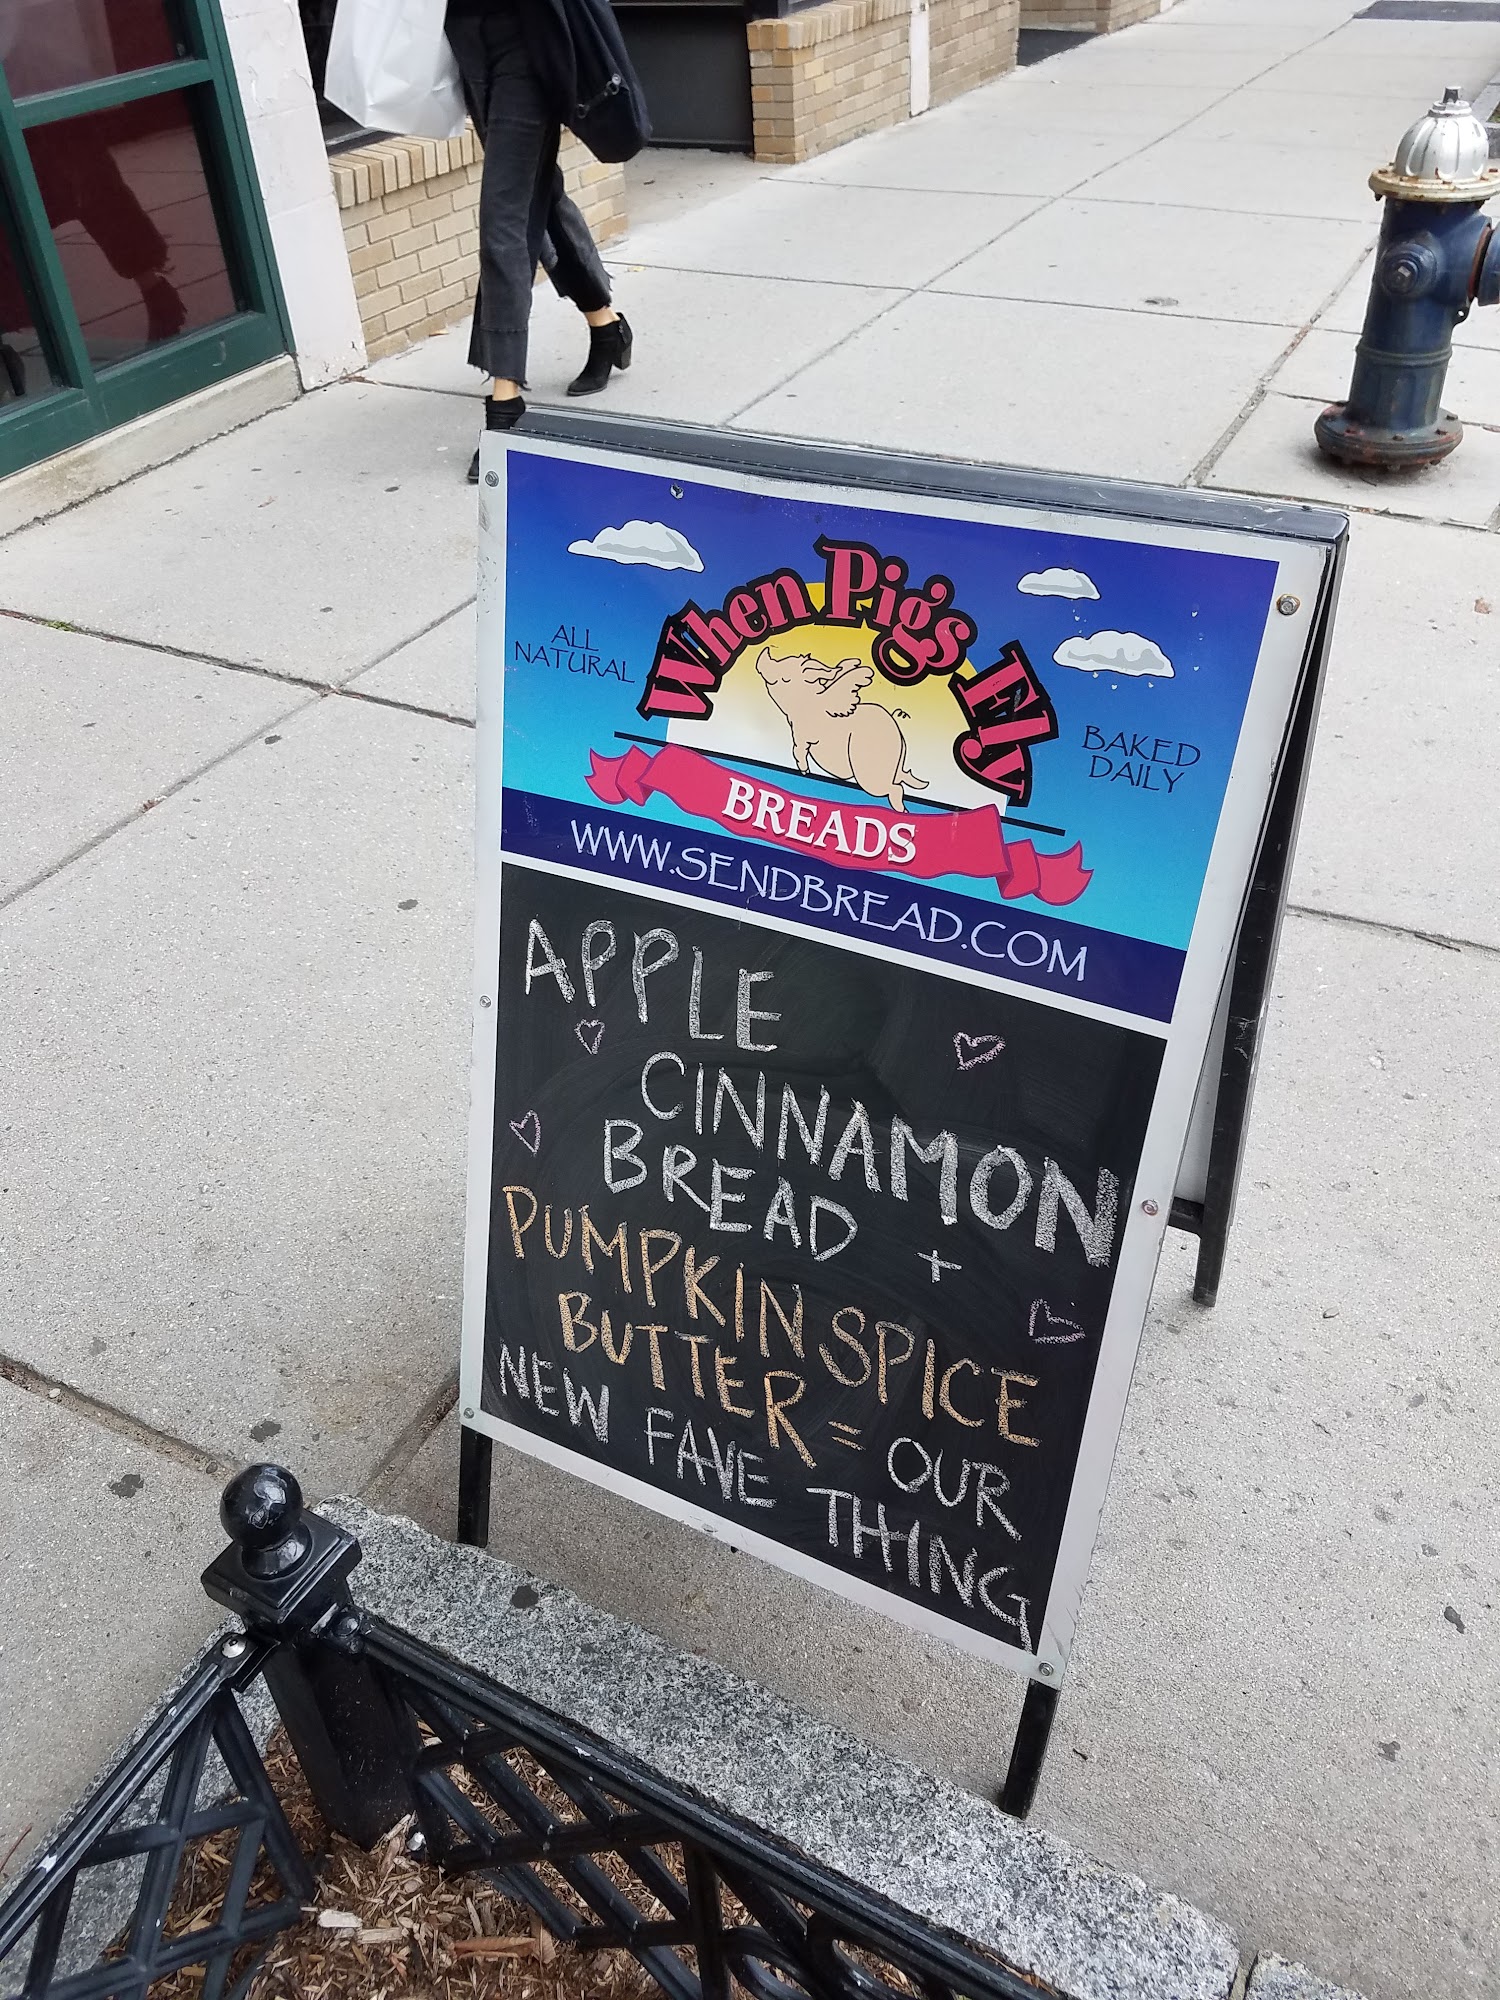 When Pigs Fly
ALL
NATURAL
BAKED
DAILY
BREADS
WWW.SENDBREAD.COM
APPLE
CINNAMON
BREAD +
PUMPKIN SPICE
BUTTER = OUR
NEW FAVE THING